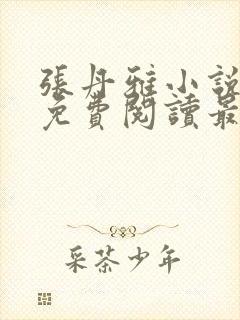 張丹雅小說
免費閱讀最
采茶少年